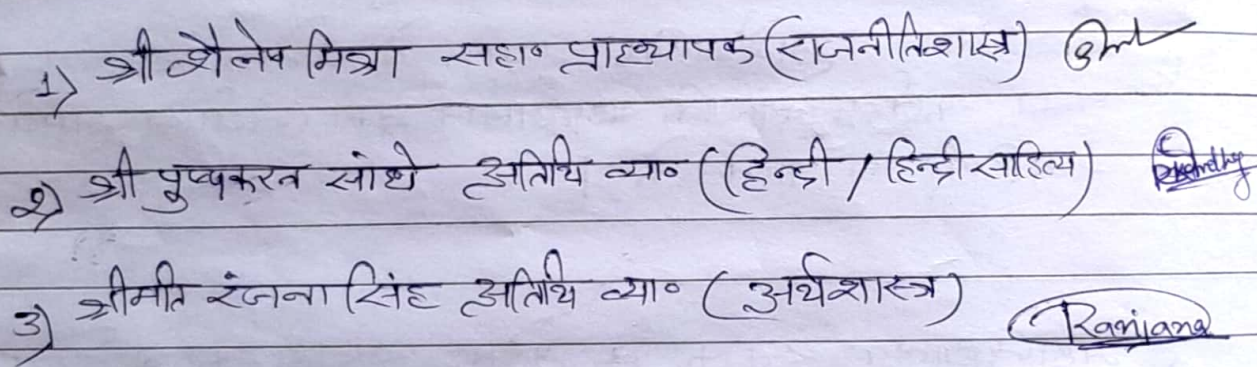 1) श्री शैलेष मिश्रा सहा० प्राध्यापक (राजनीतिशास्त्र)
2) श्री पुष्पकरन सांधे अतिथि व्या० (हिन्दी / हिन्दी साहित्य)
3) श्रीमति रंजना सिंह अतिथि व्या० (अर्थशास्त्र) Ranjana